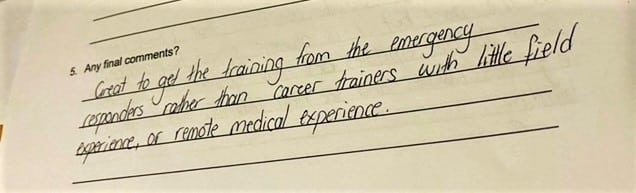 5. Any final comments?
Great to get the training from the emergency
responders rather than career trainers with little field
experience, or remote medical experience.